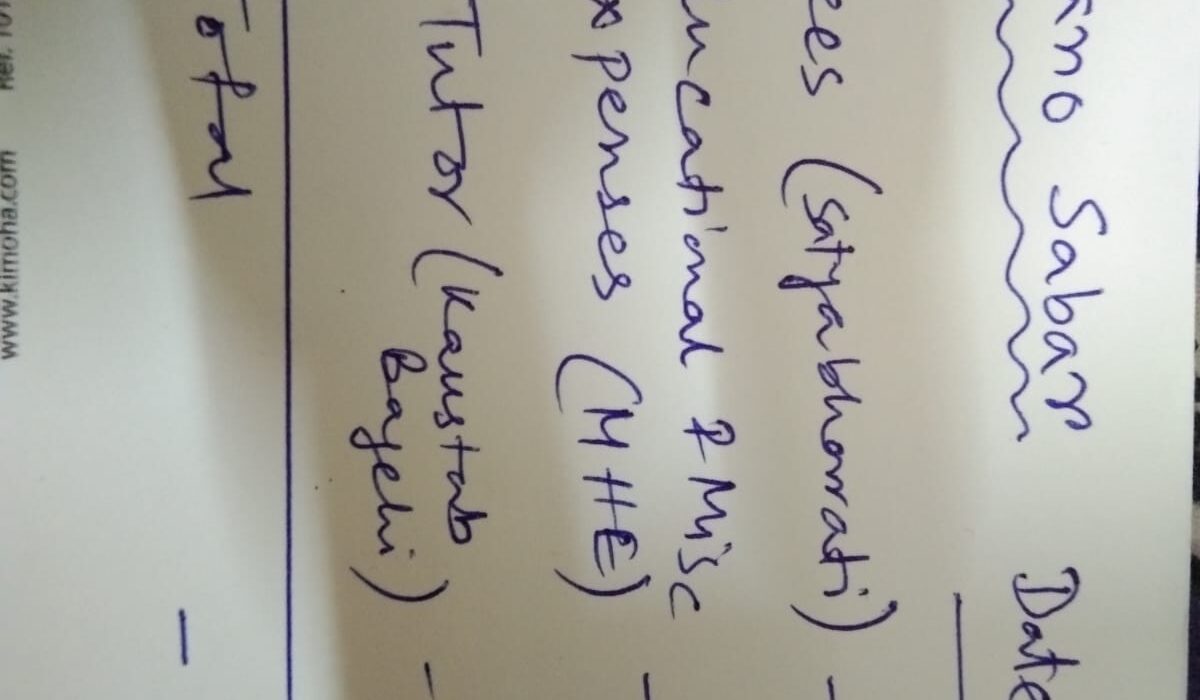 no Sabar Date
ees (Satyabharati) -
ucational & Misc
xpenses (MHE) -
Tutor (Kaustab
Bagchi) -
Total -
www.kimoha.com